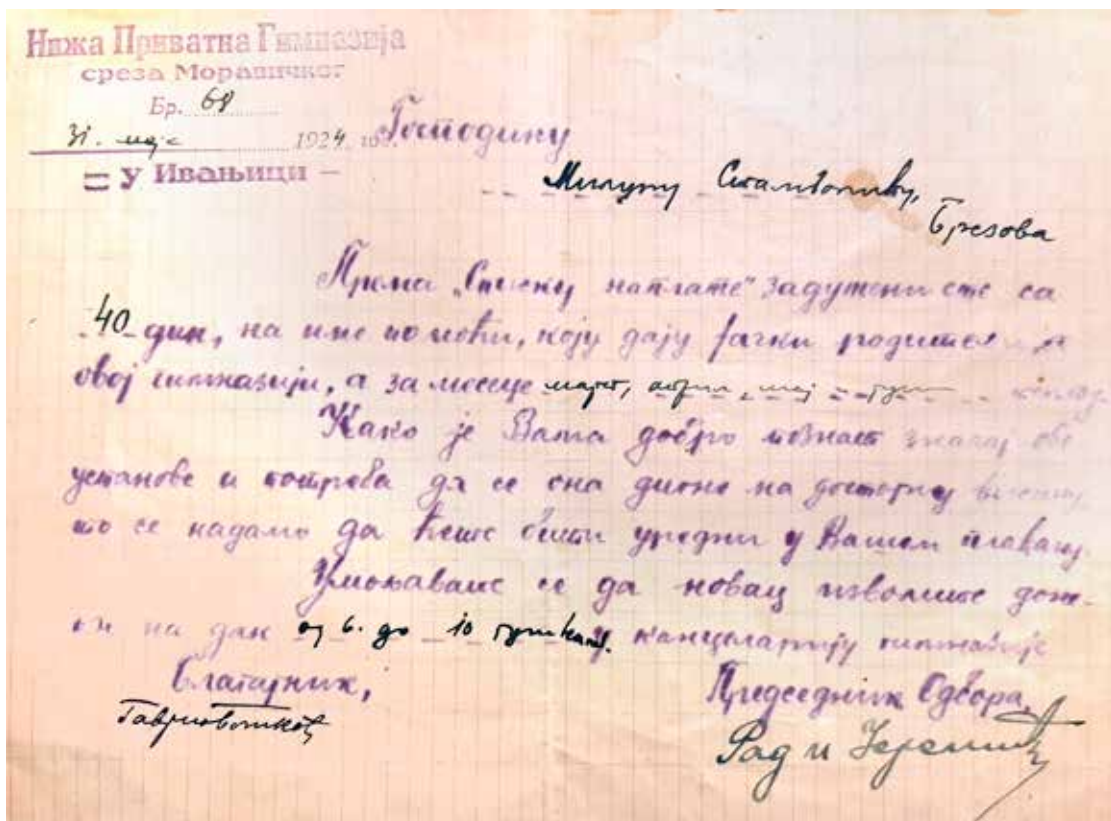 Нижа Приватна Гимназија
среза Моравичког
Бр. 68
31. маја 1924 год.
= У Ивањици –
Господину
Милуну
Брезова
Према „Списку наплате" задужени сте са
40 дин, на име помоћи, коју дају ђачки родитељи
овој гимназији, а за месеце март, април, мај јуни
Како је Вама добро познат значај ове
установе и потреба да се она дигне на достојну висину,
то се надамо да ћете бити уредни у Вашем плаћању.
Умољавате се да новац изволите доне-
ти на дан од 6. до 10 јуна у канцеларију гимназије
Благајник,
Председник Одбора,